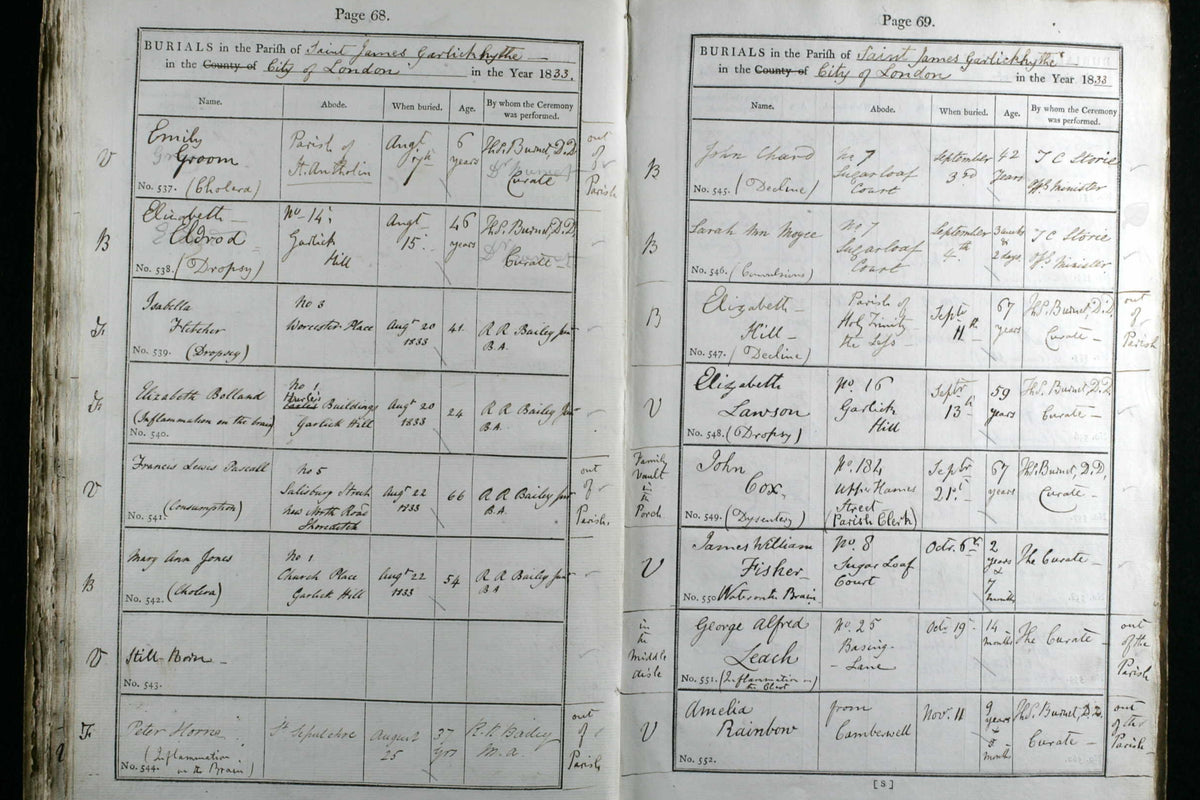 Page 68.
BURIALS in the Parish of Saint James Garlickhythe
in the County of City of London in the Year 1833.
Name. Abode. When buried. Age. By whom the Ceremony was performed.
V
Emily Groom
No. 537. (Cholera)
Parish of St. Antholin
Augt. 7th
6 years
Ths. Burnet, D.D. Curate
out of Parish
B
Elizabeth Eldrod
No. 538. (Dropsy)
No. 14. Garlick Hill
Augt. 15.
46 years
Ths. Burnet, D.D. Curate
F
Isabella Fletcher
No. 539. (Dropsy)
No 3 Worcester Place
Augt 20 1833
41
R R Bailey Junr B.A.
F
Elizabeth Bolland
(Inflammation on the brain)
No. 540.
No 1 Buildings Garlick Hill
Augt 20 1833
24
R R Bailey Junr B.A.
V
Francis Lewis Pascall
No. 541. (Consumption)
No 5 Salisbury Street New North Road Shoreditch
Augt 22 1833
66
R R Bailey Junr B.A.
out of Parish.
B
Mary Ann Jones
No. 542. (Cholera)
No 1 Church Place Garlick Hill
Augt 22 1833
54
R R Bailey Junr B A
V
Still Born
No. 543.
F
Peter Horne
No. 544. (Inflammation on the Brain)
St Sepulchre
August 25
37 yrs
R. R. Bailey M.A.
out of Parish
Page 69.
BURIALS in the Parish of Saint James Garlickhythe
in the County of City of London in the Year 1833
Name. Abode. When buried. Age. By whom the Ceremony was performed.
B
John Chard
No. 545. (Decline)
No 7 Sugarloaf Court
September 3rd
42 Years
T C Storie Offg Minister
B
Sarah Ann
No. 546. (Convulsions)
No 7 Sugarloaf Court
September 4th
3 weeks & 2 days
T C Storie Offg Minister
B
Elizabeth Hill
No. 547. (Decline)
Parish of Holy Trinity the Less
Septr 11th
67 years
Ths. Burnet, D.D. Curate
out of Parish
V
Elizabeth Lawson
No. 548. (Dropsy)
No. 16 Garlick Hill
Septr 13th
59 years
Ths. Burnet, D.D. Curate
Family Vault in the Porch
John Cox
No. 549. (Dysentery)
No. 184 Upper Thames Street (Parish Clerk)
Septr 21st
67 years
Ths. Burnet, D.D. Curate
V
James William Fisher
No. 550 Water on the Brain
No. 8 Sugar Loaf Court
Octr. 6th
2 years & 7 months
The Curate
in the Middle Aisle
George Alfred Leach
No. 551. (Inflammation on the Chest
No. 25 Basing Lane
Octr 19
14 months
The Curate
out of the Parish
V
Amelia Rainbow
No. 552.
from Camberwell
Novr. 11
9 years & months
Ths. Burnet, D.D. Curate
out of the Parish
[S]